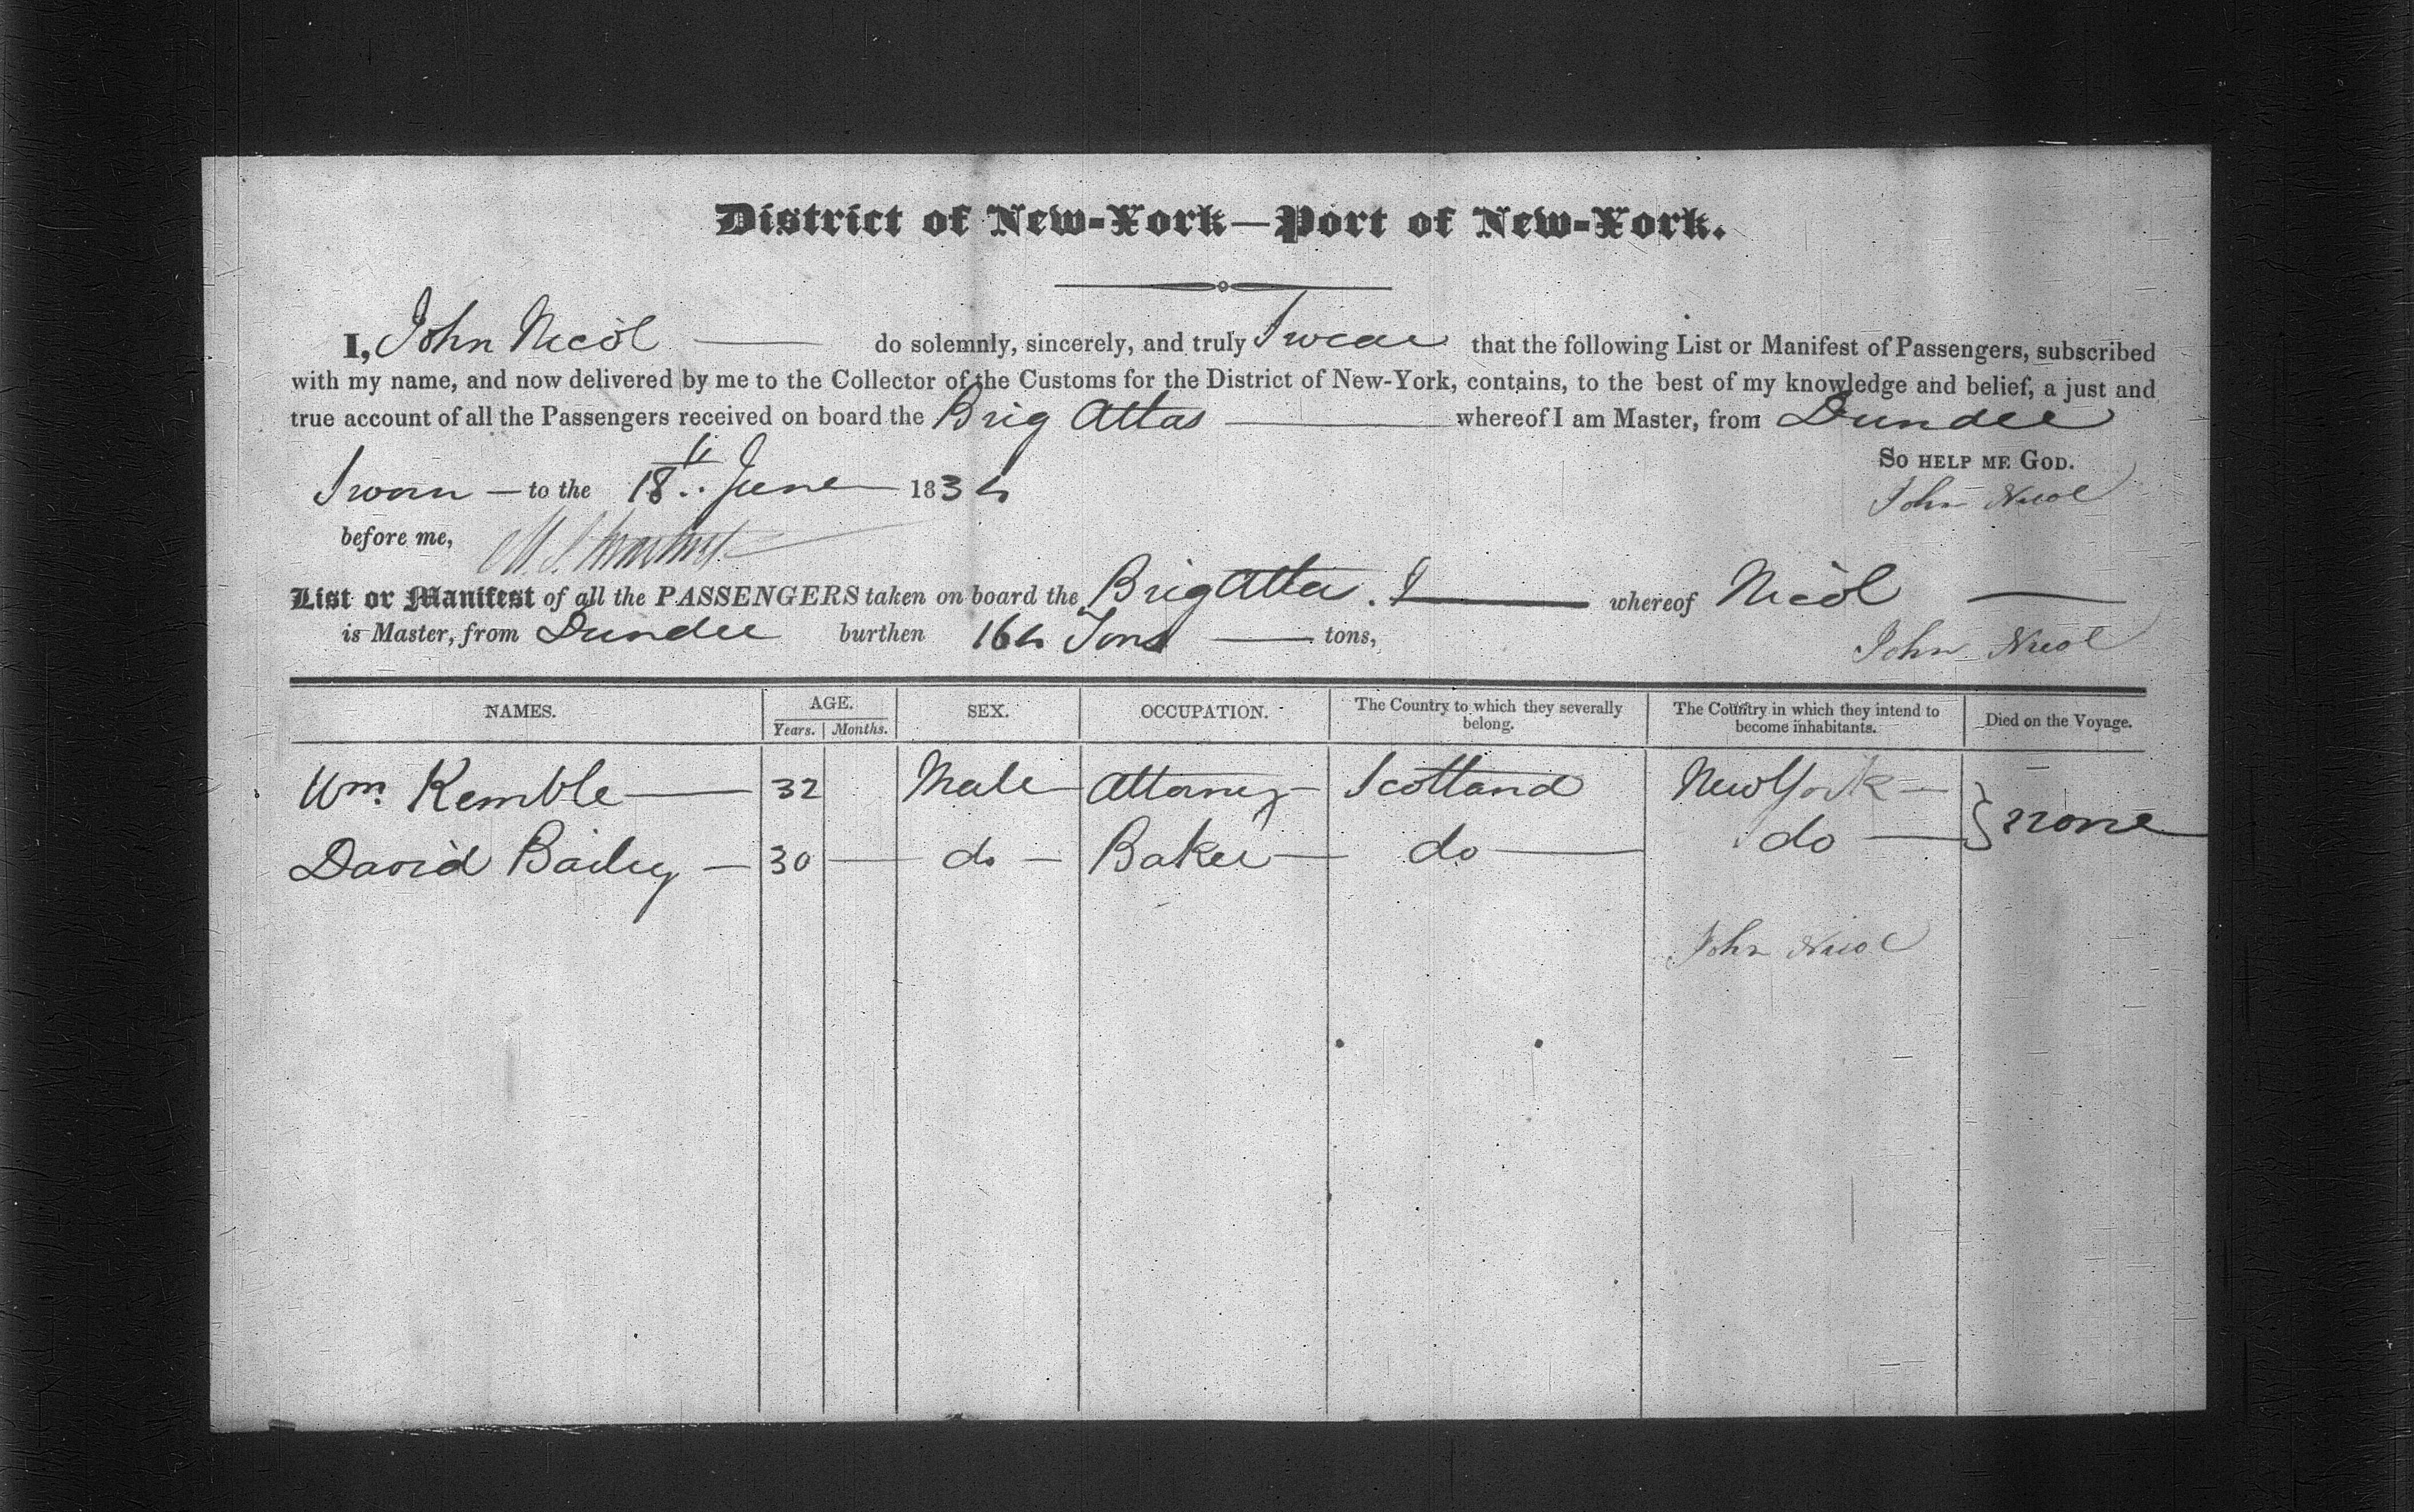 District of New-York—Port of New-York.
I, John Nicol — do solemnly, sincerely, and truly Swear that the following List or Manifest of Passengers, subscribed
with my name, and now delivered by me to the Collector of the Customs for the District of New-York, contains, to the best of my knowledge and belief, a just and
true account of all the Passengers received on board the Brig Atlas — whereof I am Master, from Dundee
SO HELP ME GOD.
Sworn — to the 18 June 1834
John Nicol
before me,
List or Manifest of all the PASSENGERS taken on board the Brig Atlas — whereof Nicol —
is Master, from Dundee burthen 164 Tons — tons,
John Nicol
NAMES. AGE. SEX. OCCUPATION. The Country to which they severally belong. The Country in which they intend to become inhabitants. Died on the Voyage.
Years. Months.
Wm. Kemble — 32 Male Attorney Scotland New York —
David Bailey — 30 — do — Baker — do — do — } none
John Nicol